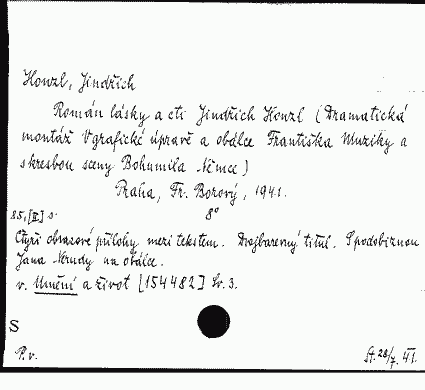 Honzl, Jindřich
Román lásky a cti Jindřich Honzl (Dramatická
montáž V grafické úpravě a obálce Františka Muziky a
s kresbou sceny Bohumila Němce)
Praha, Fr. Borový, 1941.
85, [II] s. 8°
Čtyři obrazové přílohy mezi tekstem. Dvojbarevný titul. S podobiznou
Jana Nerudy na obálce.
v. Umění a život [154482] Sv. 3.
S
P. v. St. 28/7. 41.